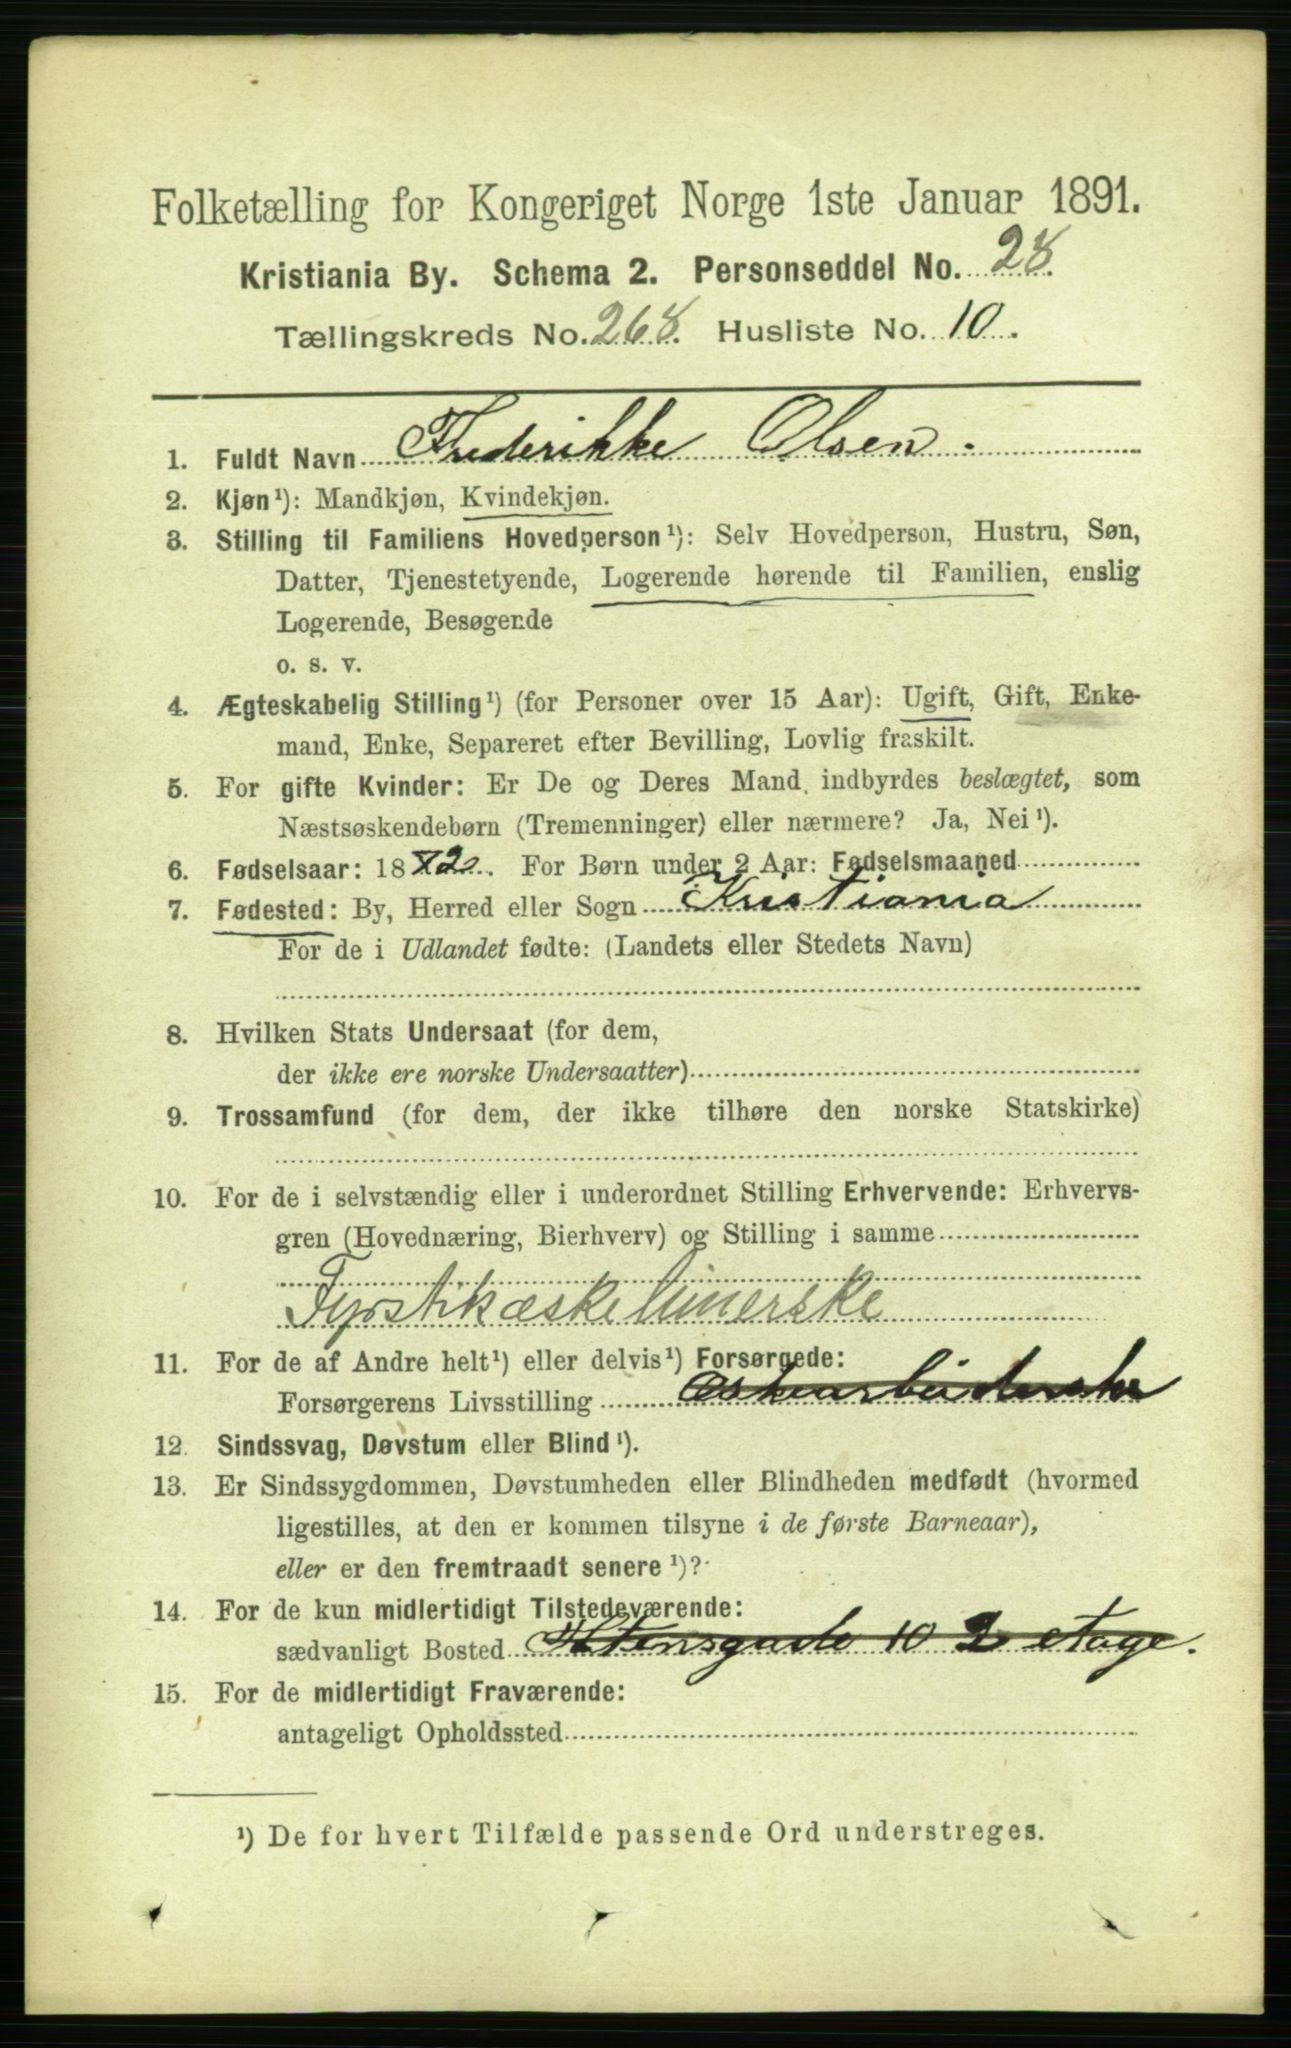 Folketælling for Kongeriget Norge 1ste Januar 1891.
Kristiania By. Schema 2. Personseddel No. 28.
Tællingskreds No. 268. Husliste No. 10.
1. Fuldt Navn Frederikke Olsen.
2. Kjøn¹): Mandkjøn, Kvindekjøn.
3. Stilling til Familiens Hovedperson¹): Selv Hovedperson, Hustru, Søn,
Datter, Tjenestetyende, Logerende hørende til Familien, enslig
Logerende, Besøgende
o. s. v.
4. Ægteskabelig Stilling¹) (for Personer over 15 Aar): Ugift, Gift, Enke-
mand, Enke, Separeret efter Bevilling, Lovlig fraskilt.
5. For gifte Kvinder: Er De og Deres Mand indbyrdes beslægtet, som
Næstsøskendebørn (Tremenninger) eller nærmere? Ja, Nei¹).
6. Fødselsaar: 1872. For Børn under 2 Aar: Fødselsmaaned
7. Fødested: By, Herred eller Sogn Kristiania
For de i Udlandet fødte: (Landets eller Stedets Navn)
8. Hvilken Stats Undersaat (for dem,
der ikke ere norske Undersaatter)
9. Trossamfund (for dem, der ikke tilhøre den norske Statskirke)
10. For de i selvstændig eller i underordnet Stilling Erhvervende: Erhvervs-
gren (Hovednæring, Bierhverv) og Stilling i samme
Fyrstikæskelimerske
11. For de af Andre helt¹) eller delvis¹) Forsørgede:
Forsørgerens Livsstilling Æskearbeiderske
12. Sindssvag, Døvstum eller Blind¹).
13. Er Sindssygdommen, Døvstumheden eller Blindheden medfødt (hvormed
ligestilles, at den er kommen tilsyne i de første Barneaar),
eller er den fremtraadt senere¹)?
14. For de kun midlertidigt Tilstedeværende:
sædvanligt Bosted 10 2 etage.
15. For de midlertidigt Fraværende:
antageligt Opholdssted
¹) De for hvert Tilfælde passende Ord understreges.